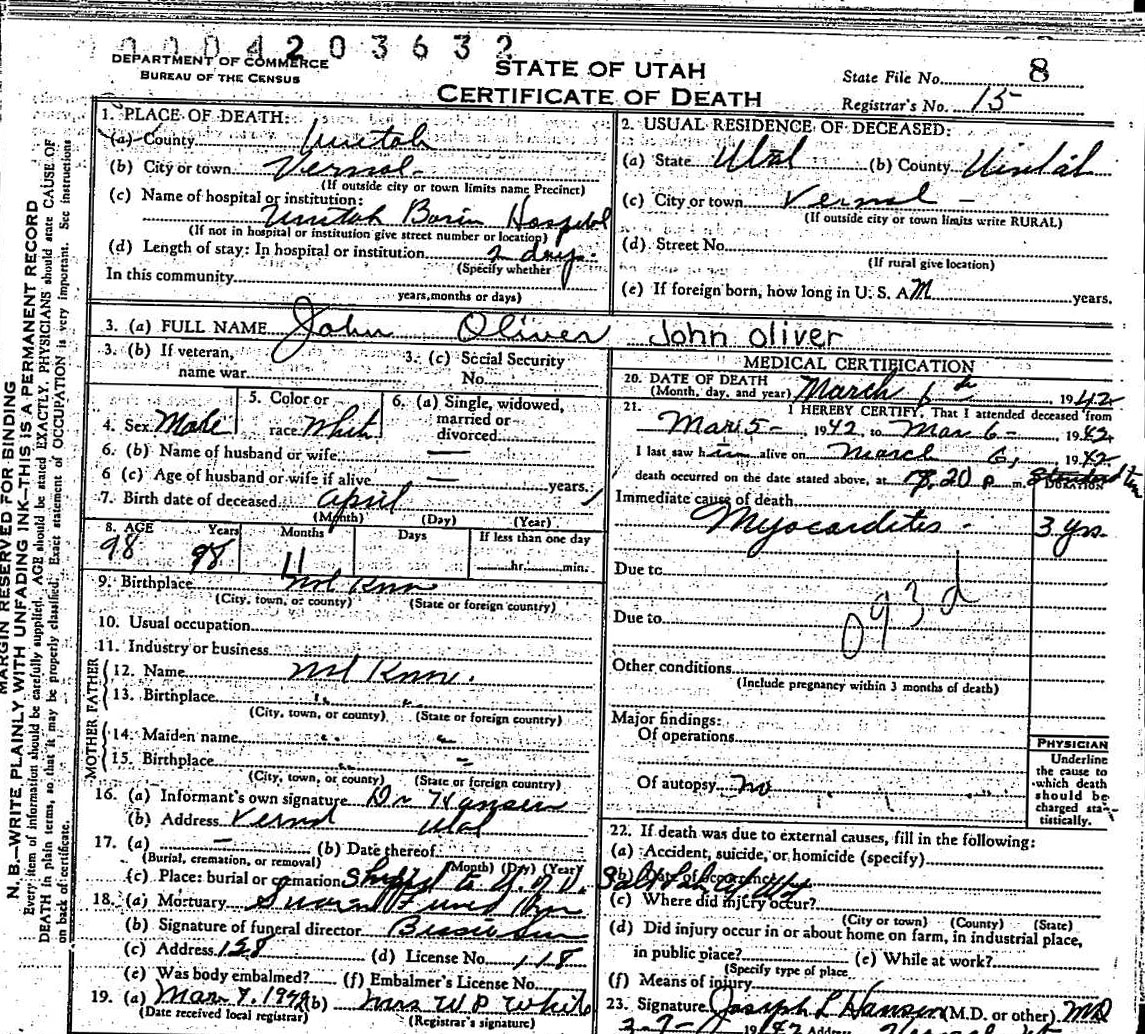 0004203632
DEPARTMENT OF COMMERCE
BUREAU OF THE CENSUS
STATE OF UTAH
CERTIFICATE OF DEATH
State File No. 8
Registrar's No. 15
MARGIN RESERVED FOR BINDING
N. B.—WRITE PLAINLY WITH UNFADING INK—THIS IS A PERMANENT RECORD
Every item of information should be carefully supplied. AGE should be stated EXACTLY. PHYSICIANS should state CAUSE OF
DEATH in plain terms, so that it may be properly classified. Exact statement of OCCUPATION is very important. See instructions
on back of certificate.
1. PLACE OF DEATH:
(a) County Uintah
(b) City or town Vernal
(If outside city or town limits name Precinct)
(c) Name of hospital or institution:
Uintah Basin Hospital
(If not in hospital or institution give street number or location)
(d) Length of stay: In hospital or institution 2 days
(Specify whether
In this community
years, months or days)
2. USUAL RESIDENCE OF DECEASED:
(a) State Utah (b) County Uintah
(c) City or town Vernal
(If outside city or town limits write RURAL)
(d) Street No.
(If rural give location)
(e) If foreign born, how long in U. S. A. years.
3. (a) FULL NAME John Oliver John Oliver
3. (b) If veteran,
name war
3. (c) Social Security
No.
4. Sex Male
5. Color or
race White
6. (a) Single, widowed,
married or
divorced
6. (b) Name of husband or wife —
6 (c) Age of husband or wife if alive — years.
7. Birth date of deceased April
(Month) (Day) (Year)
8. AGE Years Months Days If less than one day
98 98 11 hr. min.
9. Birthplace
(City, town, or county) (State or foreign country)
10. Usual occupation
11. Industry or business
FATHER
12. Name
13. Birthplace " "
(City, town, or county) (State or foreign country)
MOTHER
14. Maiden name " "
15. Birthplace "
(City, town, or county) (State or foreign country)
16. (a) Informant's own signature Dr Hansen
(b) Address Vernal Utah
17. (a) — (b) Date thereof
(Burial, cremation, or removal) (Month) (Day) (Year)
(c) Place: burial or cremation Shipped to U. of U. Salt Lake City
18. (a) Mortuary
(b) Signature of funeral director
(c) Address 158 (d) License No. 118
(e) Was body embalmed? (f) Embalmer's License No.
19. (a) Mar 7. 1942 (b) Mrs W P White
(Date received local registrar) (Registrar's signature)
MEDICAL CERTIFICATION
20. DATE OF DEATH
(Month, day, and year) March 6th, 1942
21. I HEREBY CERTIFY, That I attended deceased from
Mar 5-, 1942, to Mar 6-, 1942
I last saw him alive on March 6, 1942
death occurred on the date stated above, at 8.20 p m. Standard
Immediate cause of death DURATION
Myocarditis - 3 yrs.
Due to
093d
Due to
Other conditions
(Include pregnancy within 3 months of death)
Major findings:
Of operations
Of autopsy no
PHYSICIAN
Underline
the cause to
which death
should be
charged sta-
tistically.
22. If death was due to external causes, fill in the following:
(a) Accident, suicide, or homicide (specify)
(b) Date of occurrence
(c) Where did injury occur?
(City or town) (County) (State)
(d) Did injury occur in or about home on farm, in industrial place,
in public place? (e) While at work?
(Specify type of place
(f) Means of injury
23. Signature Joseph L Hansen (M.D. or other) MD
3-7- 1942